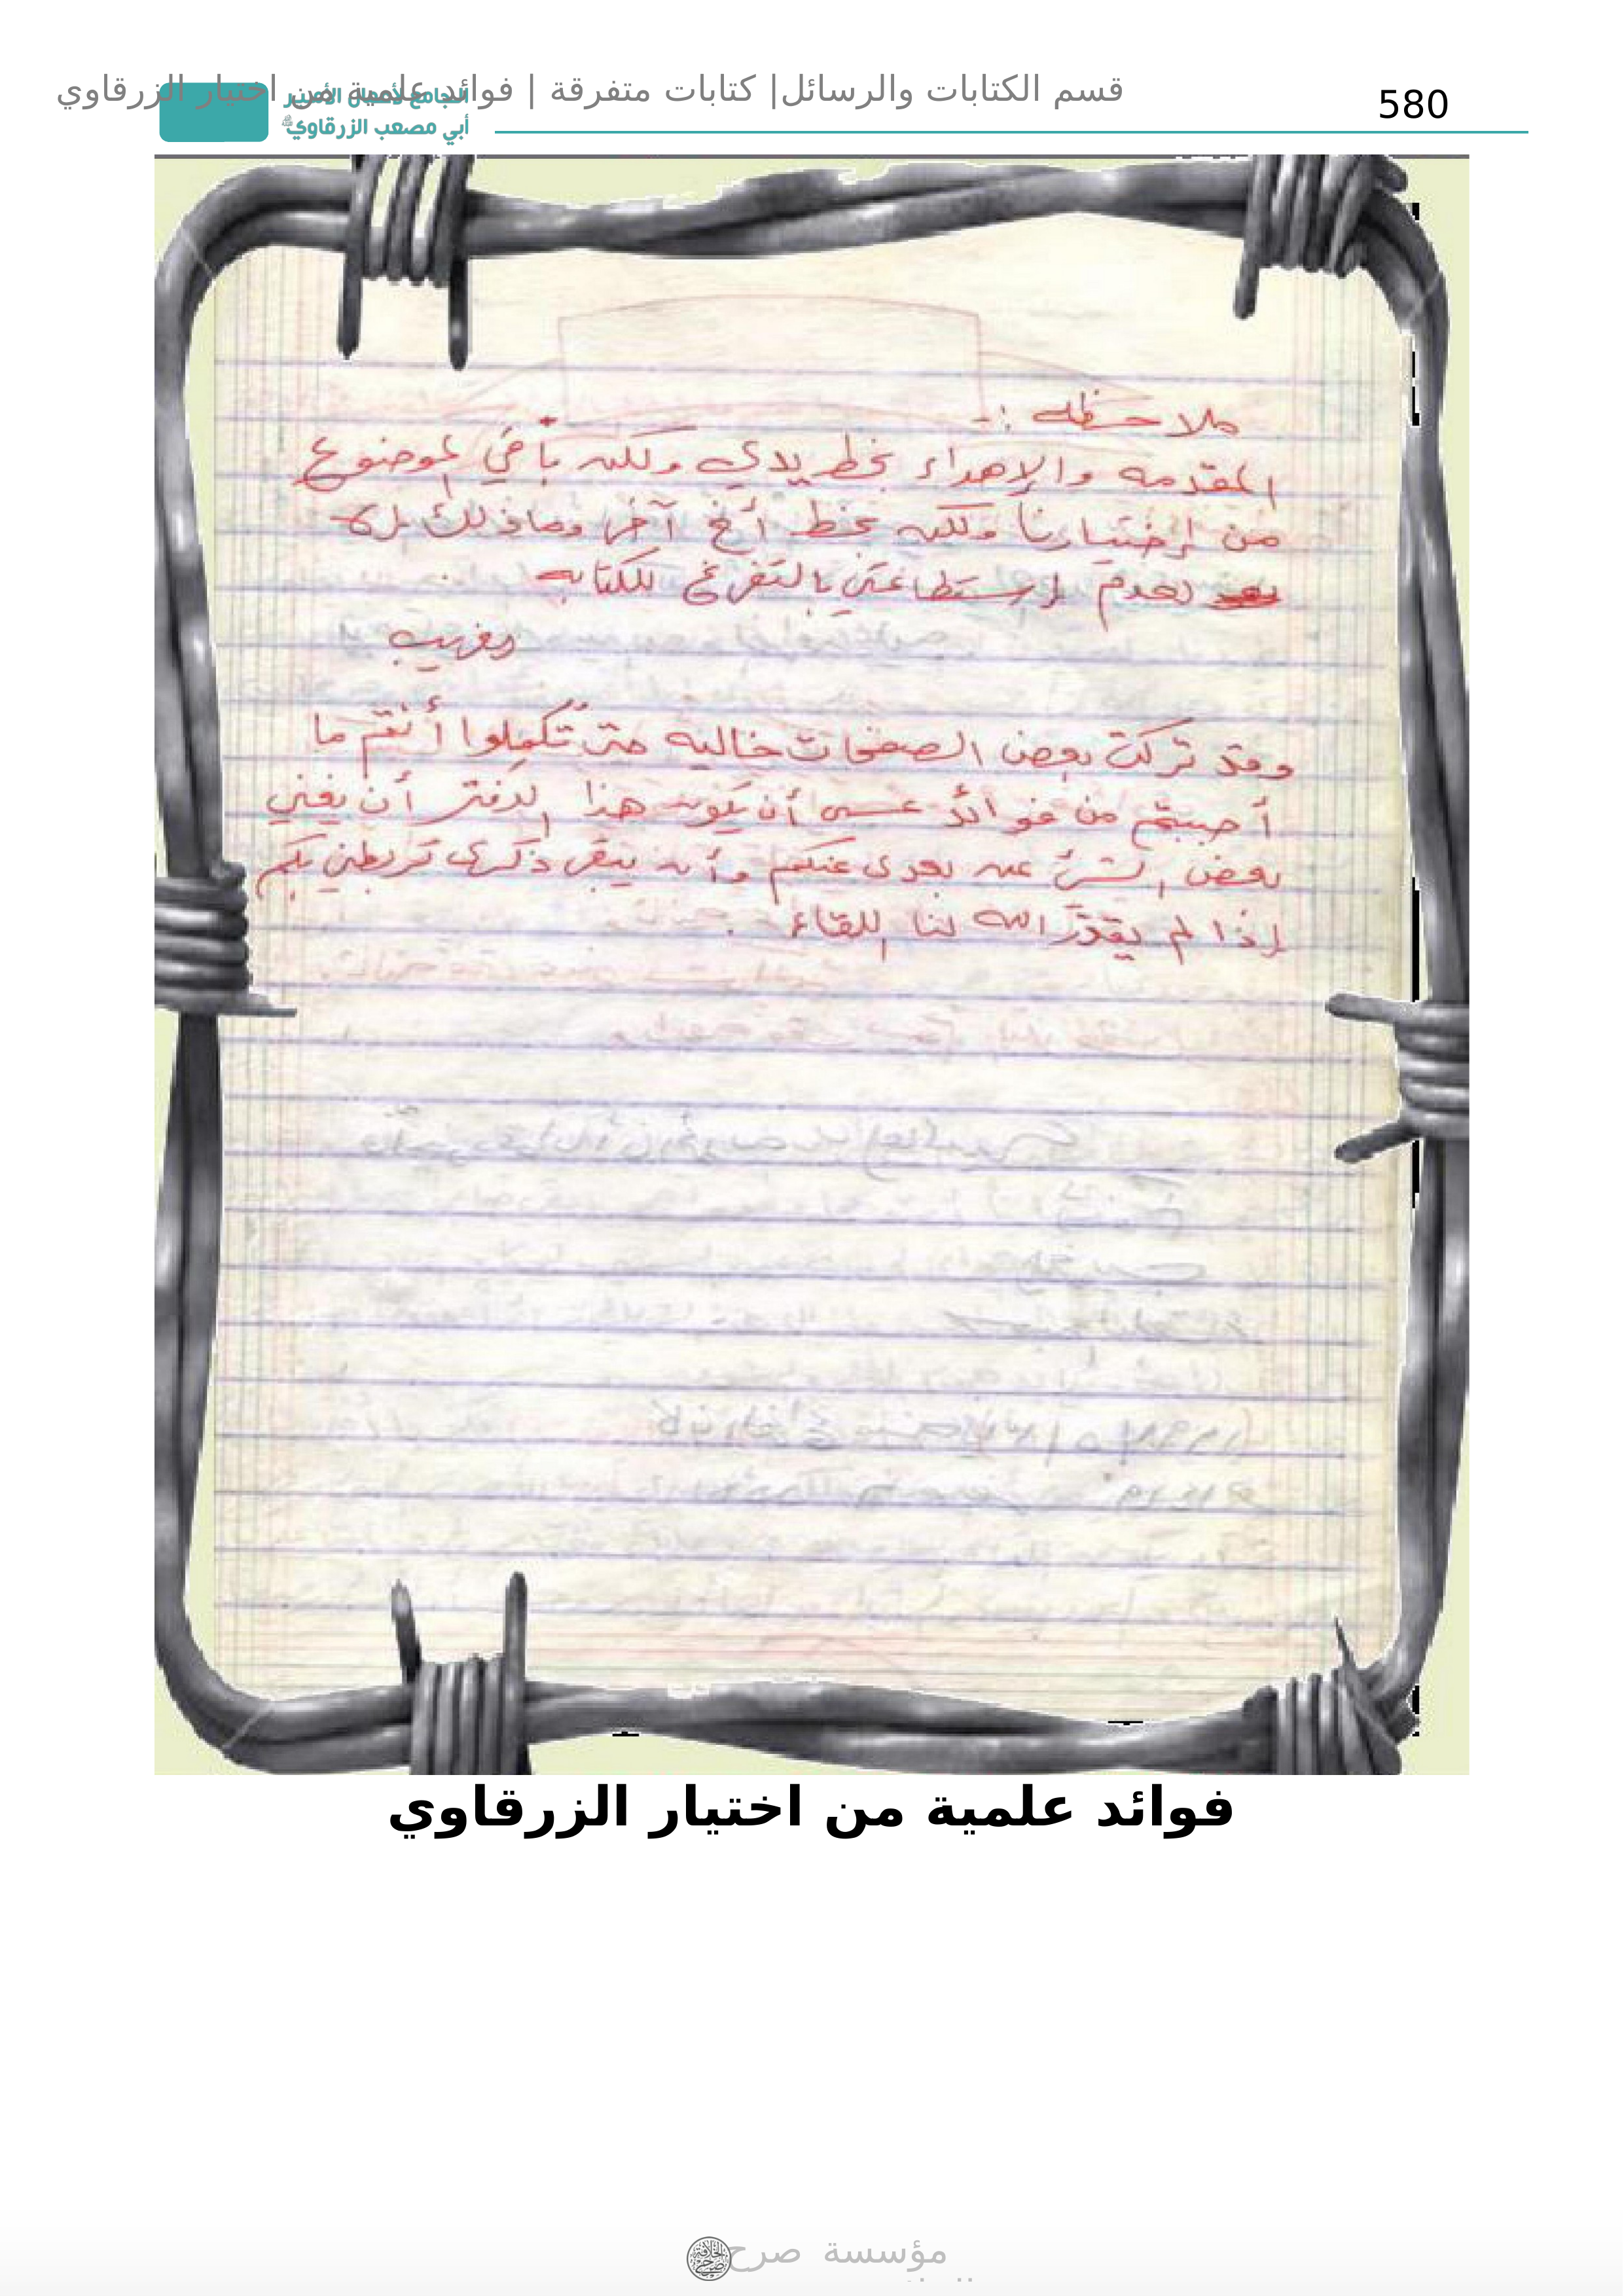 580
قسم الكتابات والرسائل| كتابات متفرقة | فوائد علمية من اختيار الزرقاوي
الجامع لأعمال الأمير
أبي مصعب الزرقاوي
ملاحظه :-
المقدمه والإهداء بخط يدي ولكن باقي الموضوع
من إختيارنا ولكن بخط أخ آخر وماذلك إلا
لعدم إستطاعتي بالتفرغ للكتابه
الغريب
وقد تركت بعض الصفحات خاليه حتى تُكملوا أنتم ما
أحببتم من فوائد عسى أن يكون هذا الدفتر أن يغني
بعض الشئ عن بعدي عنكم وأن يبقى ذكرى تربطني بكم
إذا لم يقدّر الله لنا اللقاء .
فوائد علمية من اختيار الزرقاوي
مؤسسة صرح